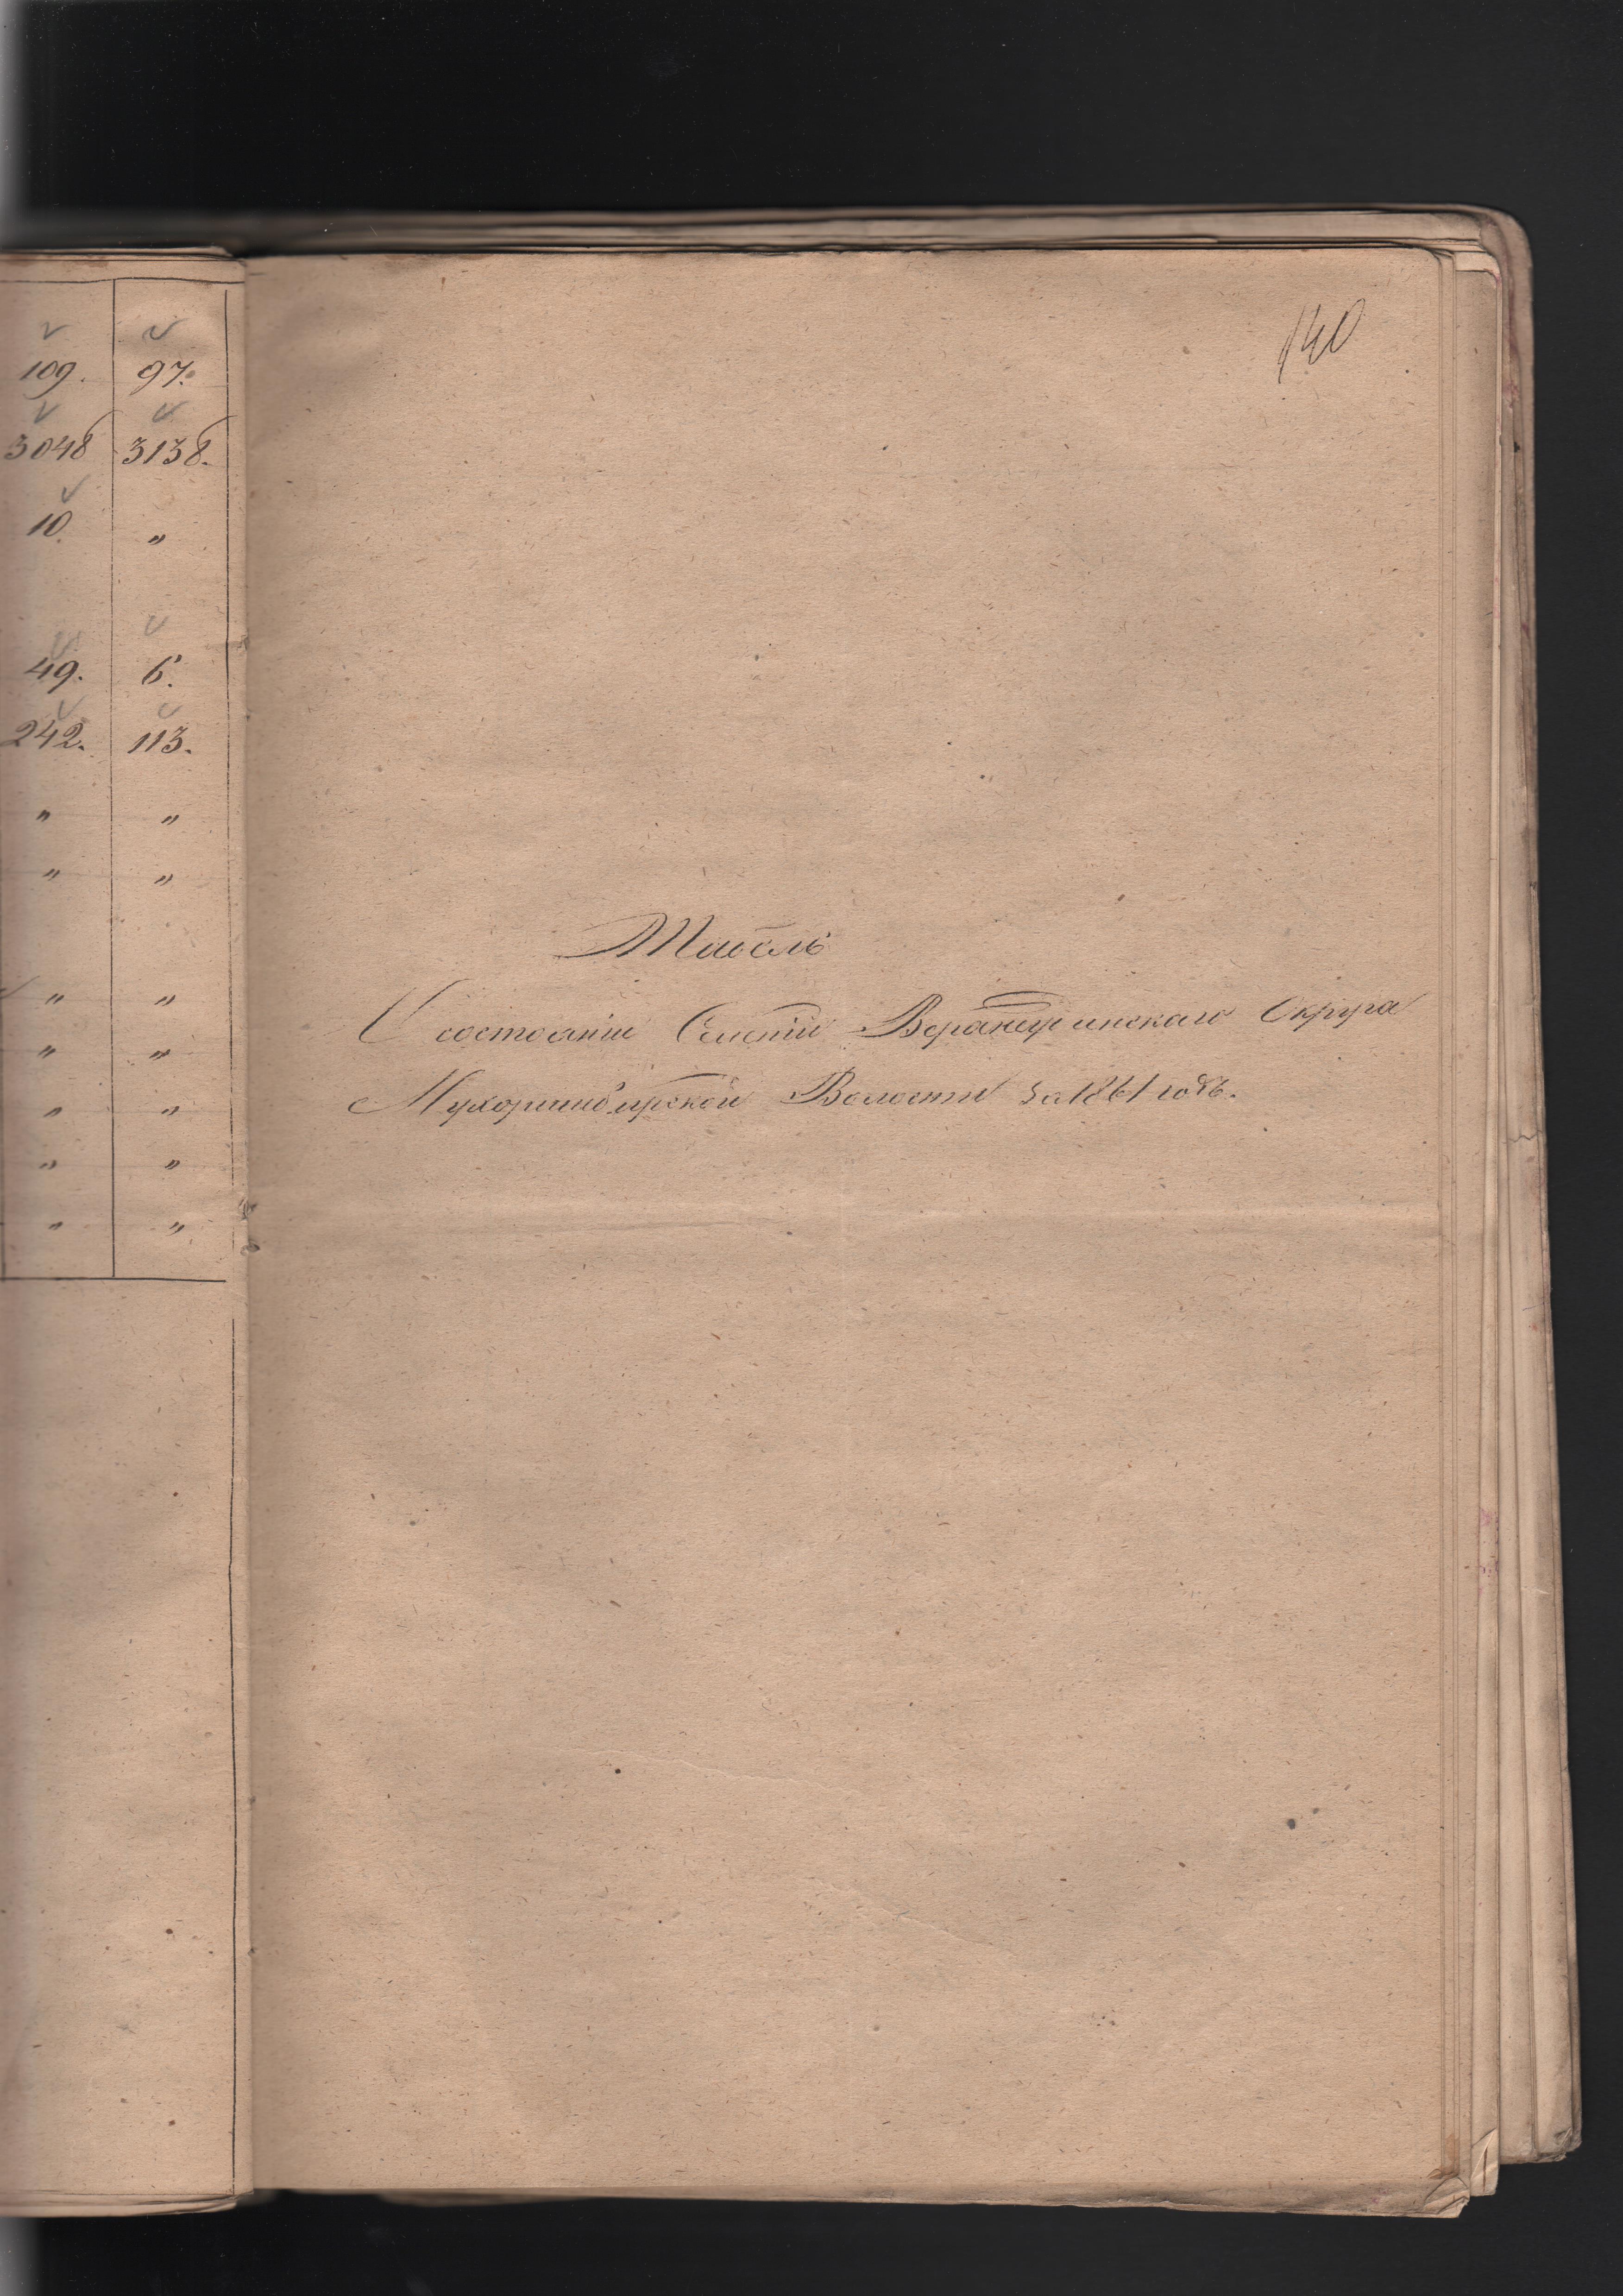 109. 97.
3048 3138.
10. "
49. 6.
242. 113.
" "
" "
" "
" "
" "
" "
" "
140
Табель
О состоянiи Селенiй округа
Мухоршибирской Волости за 1861 годъ.